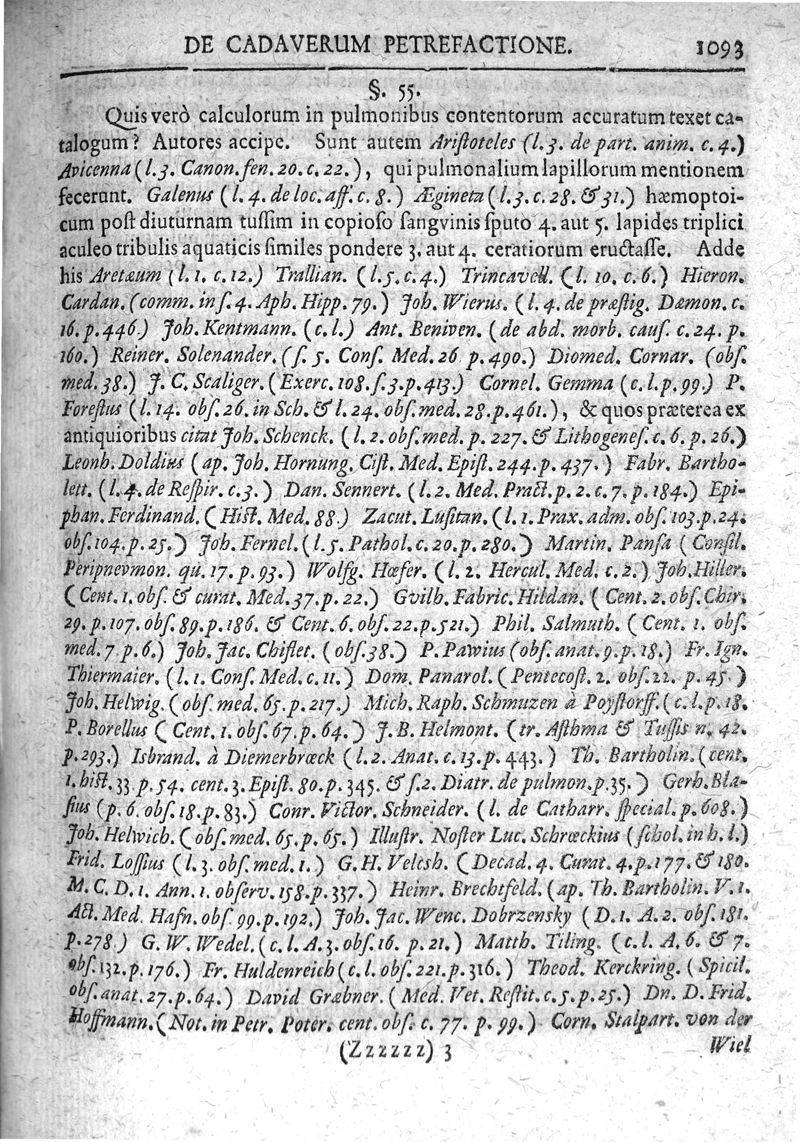 DE CADAVERUM PETREFACTIONE. 1093
§. 55.
Quis verò calculorum in pulmonibus contentorum accuratum texet ca-
talogum? Autores accipe. Sunt autem Ariſtoteles (l.3. de part. anim. c.4.)
Avicenna (l.3. Canon.fen.20.c.22.), qui pulmonalium lapillorum mentionem
fecerunt. Galenus (l.4. de loc.aff.c.8.) Ægineta (l.3.c.28. & 31.) hæmoptoi-
cum poſt diuturnam tuſſim in copioſo ſangvinis ſputo 4. aut 5. lapides triplici
aculeo tribulis aquaticis ſimiles pondere 3. aut 4. ceratiorum eructaſſe. Adde
his Aretæum (l.1. c.12.) Trallian. (l.5.c.4.) Trincavell. (l. 10. c.6.) Hieron.
Cardan. (comm. in ſ.4. Aph. Hipp. 79.) Joh. Wierus. (l.4. de præſtig. Dæmon. c.
16. p.446.) Joh. Kentmann. (c.l.) Ant. Beniven. (de abd. morb. cauſ. c.24. p.
160.) Reiner. Solenander. (ſ. 5. Conſ. Med. 26 p.490.) Diomed. Cornar. (obſ.
med. 38.) J. C. Scaliger. (Exerc. 108. ſ.3.p.413.) Cornel. Gemma (c.l.p.99.) P.
Foreſtus (l.14. obſ. 26. in Sch. & l.24. obſ.med. 28.p.461.), & quos præterea ex
antiquioribus citat Joh. Schenck. (l.2. obſ.med. p. 227. & Lithogeneſ. c. 6. p.26.)
Leonh. Doldius (ap. Joh. Hornung. Ciſt. Med. Epiſt. 244. p. 437.) Fabr. Bartho-
lett. (l.4. de Reſpir. c.3.) Dan. Sennert. (l.2. Med. Pract. p.2. c.7. p.184.) Epi-
phan. Ferdinand. (Hiſt. Med. 88.) Zacut. Luſitan. (l.1. Prax. adm. obſ. 103.p.24.
obſ.104.p.25.) Joh. Fernel. (l.5. Pathol. c.20.p.280.) Martin. Panſa (Conſil.
Peripnevmon. qu. 17. p.93.) Wolfg. Hœfer. (l.2. Hercul. Med. c.2.) Joh. Hiller.
(Cent. 1. obſ. & curat. Med. 37. p. 22.) Gvilh. Fabric. Hildan. (Cent. 2. obſ. Chir.
29. p.107. obſ. 89. p.186. & Cent. 6. obſ. 22. p.521.) Phil. Salmuth. (Cent. 1. obſ.
med. 7 p. 6.) Joh. Jac. Chiflet. (obſ.38.) P. Pawius (obſ. anat. 9. p.18.) Fr. Ign.
Thiermaier. (l.1. Conſ. Med. c.11.) Dom. Panarol. (Pentecoſt. 2. obſ.22. p. 45.)
Joh. Helwig. (obſ. med. 65. p.217.) Mich. Raph. Schmuzen à Poyſtorff. (c.l.p.18.
P. Borellus (Cent. 1. obſ. 67. p.64.) J. B. Helmont. (tr. Aſthma & Tuſſis n. 42.
p.293.) Isbrand. à Diemerbrœck (l.2. Anat. c.13. p.443.) Th. Bartholin. (cent.
1. hiſt. 33. p. 54. cent. 3. Epiſt. 80. p.345. & ſ.2. Diatr. de pulmon.p.35.) Gerh. Bla-
ſius (p. 6. obſ. 18. p.83.) Conr. Victor. Schneider. (l. de Catharr. ſpecial. p.608.)
Joh. Helwich. (obſ. med. 65. p.65.) Illuſtr. Noſter Luc. Schrœckius (ſchol. in h. l.)
Frid. Loſſius (l.3. obſ. med. 1.) G. H. Velsh. (Decad. 4. Curat. 4. p.177. & 180.
M. C. D. 1. Ann. 1. obſerv. 158. p.337.) Heinr. Brechtfeld. (ap. Th. Bartholin. V. 1.
Act. Med. Hafn. obſ. 99. p.192.) Joh. Jac. Wenc. Dobrzensky (D. 1. A. 2. obſ. 181.
p.278.) G. W. Wedel. (c.l. A.3. obſ. 16. p. 21.) Matth. Tiling. (c. l. A. 6. & 7.
obſ. 132. p. 176.) Fr. Huldenreich (c. l. obſ. 221. p.316.) Theod. Kerckring. (Spicil.
obſ. anat. 27. p. 64.) David Græbner. (Med. Vet. Reſtit. c. 5. p. 25.) Dn. D. Frid.
Hoffmann. (Not. in Petr. Poter. cent. obſ. c. 77. p. 99.) Corn. Stalpart. von der
(Zzzzzz) 3 Wiel